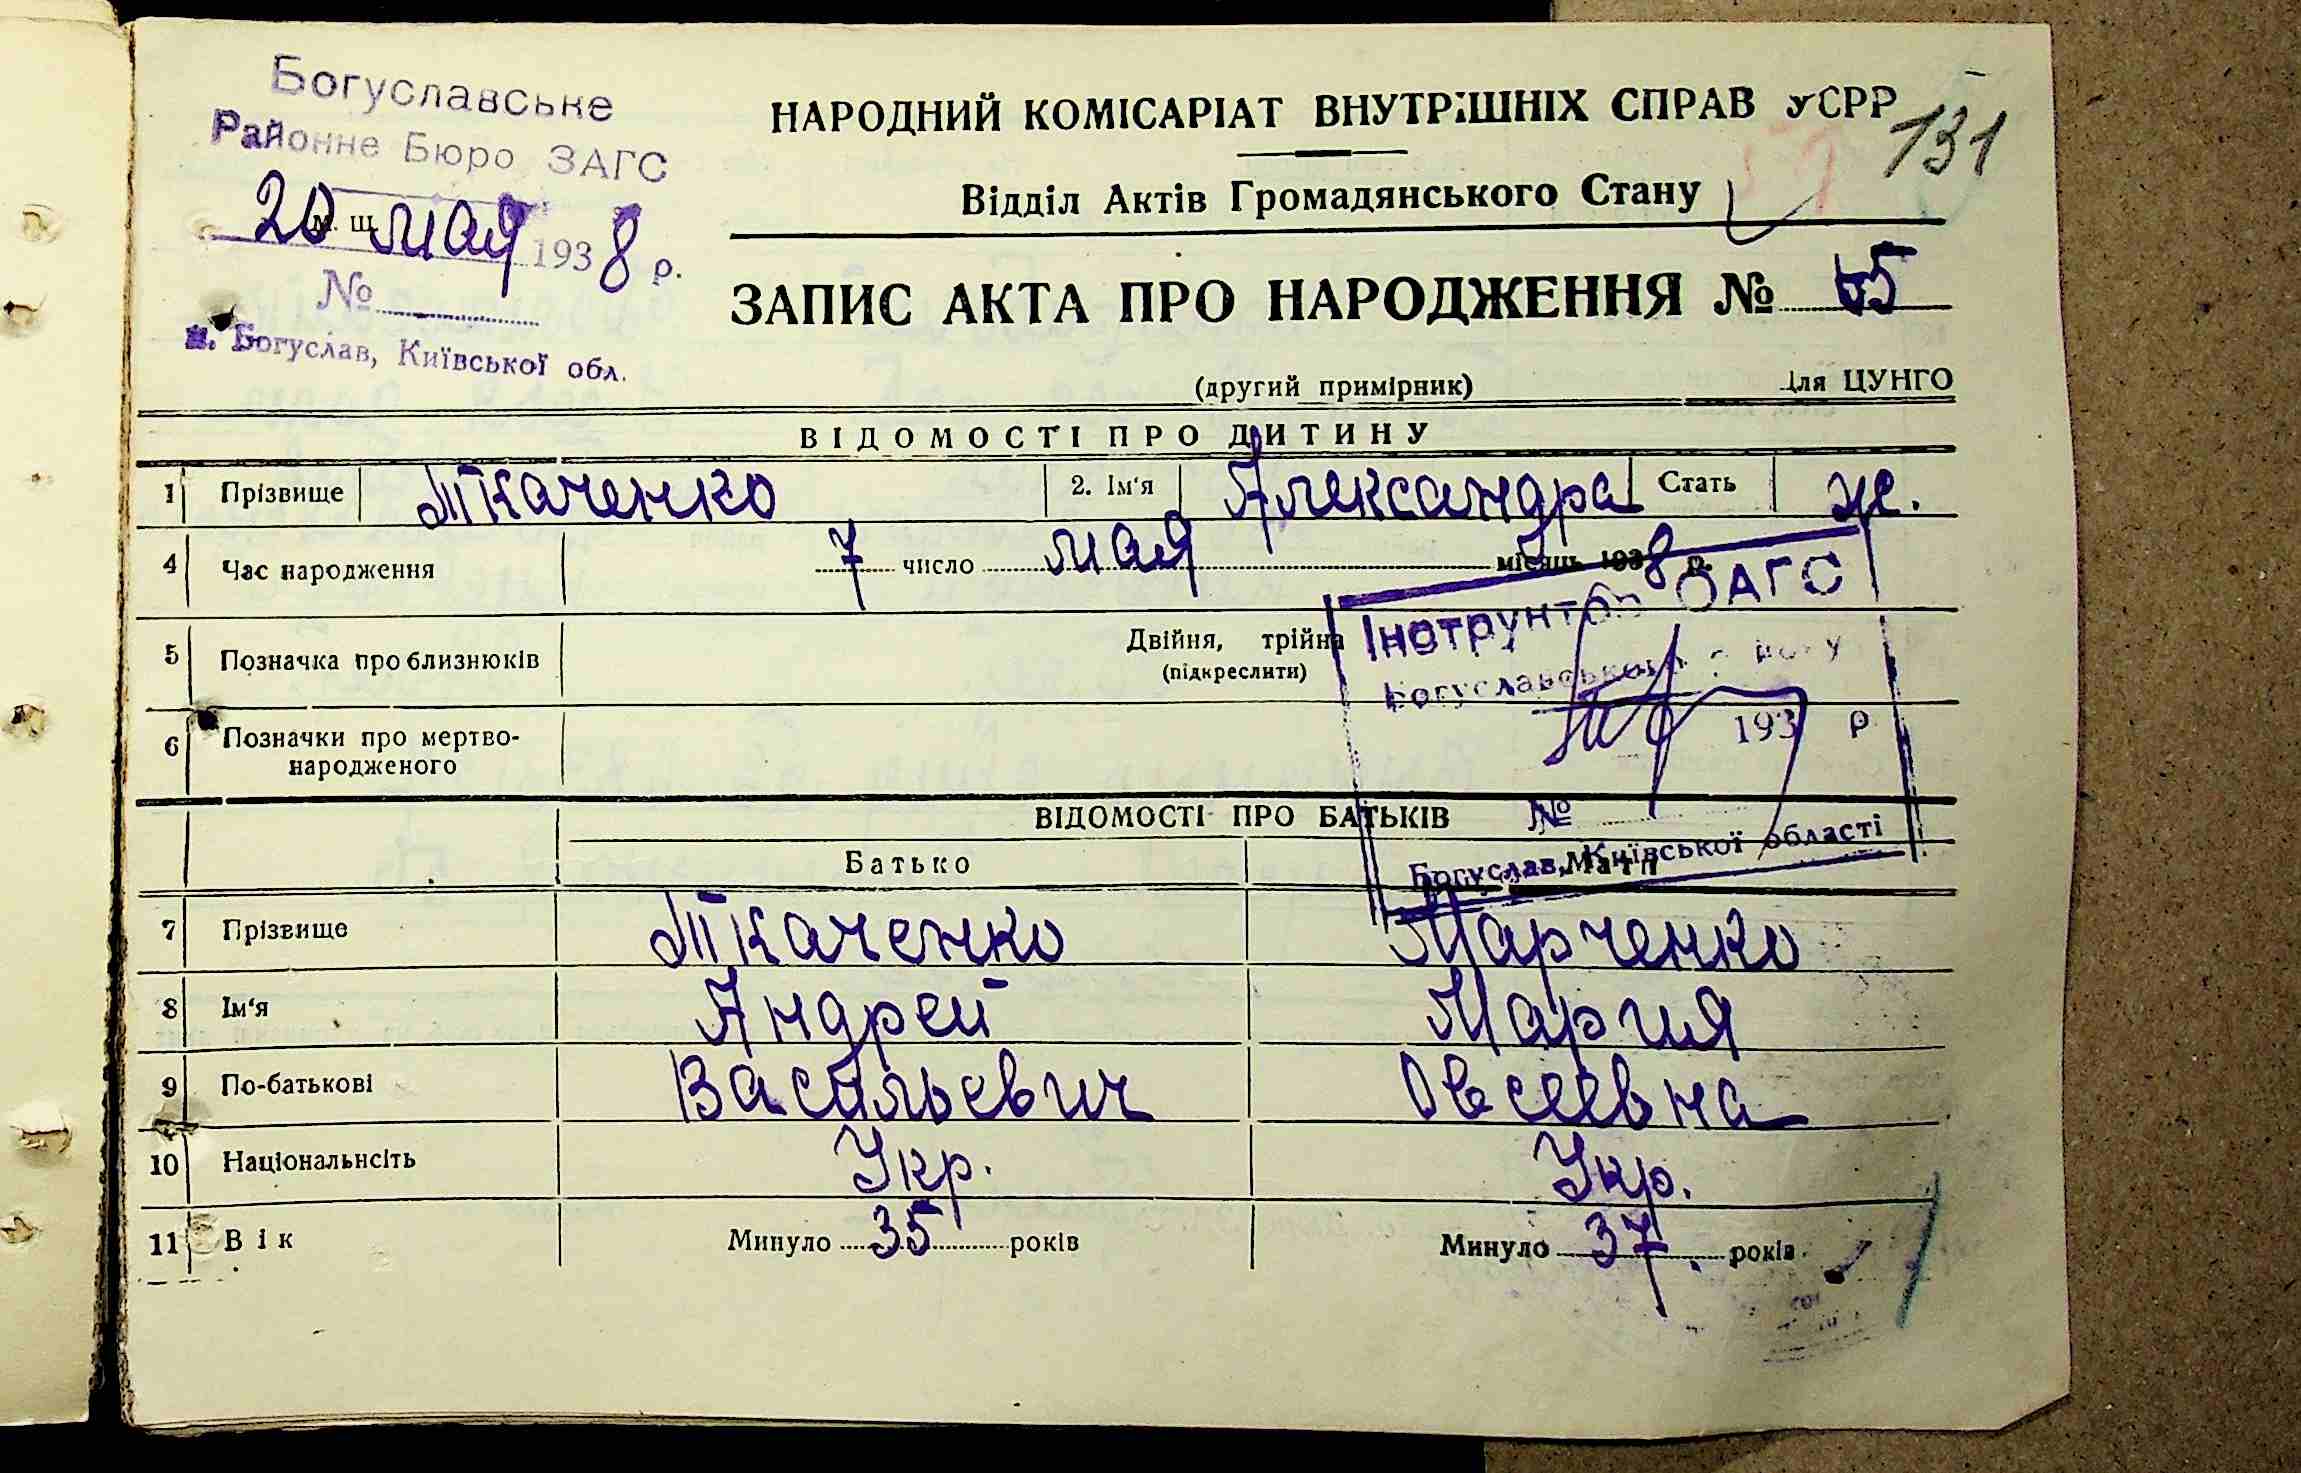 Богуславське
Районне Бюро ЗАГС
20 мая 1938 р.
№
м. Богуслав, Київської обл.
НАРОДНИЙ КОМІСАРІАТ ВНУТРІШНІХ СПРАВ УСРР
131
Відділ Актів Громадянського Стану
ЗАПИС АКТА ПРО НАРОДЖЕННЯ № 65
(другий примірник) Для ЦУНГО
ВІДОМОСТІ ПРО ДИТИНУ
1 Прізвище Ткаченко 2. Ім'я Александра Стать же.
4 Час народження 7 число мая місяць 1938 р.
5 Позначка про близнюків Двійня, трійня
(підкреслити)
6 Позначки про мертво-
народженого
Інструктор ЗАГС
Богуславського
193 р
№
Богуслав, Київської області
ВІДОМОСТІ ПРО БАТЬКІВ
Батько Мати
7 Прізвище Ткаченко Марченко
8 Ім'я Андрей Мария
9 По-батькові Васильевич Овсеевна
10 Національнсіть Укр. Укр.
11 Вік Минуло 35 років Минуло 37 років